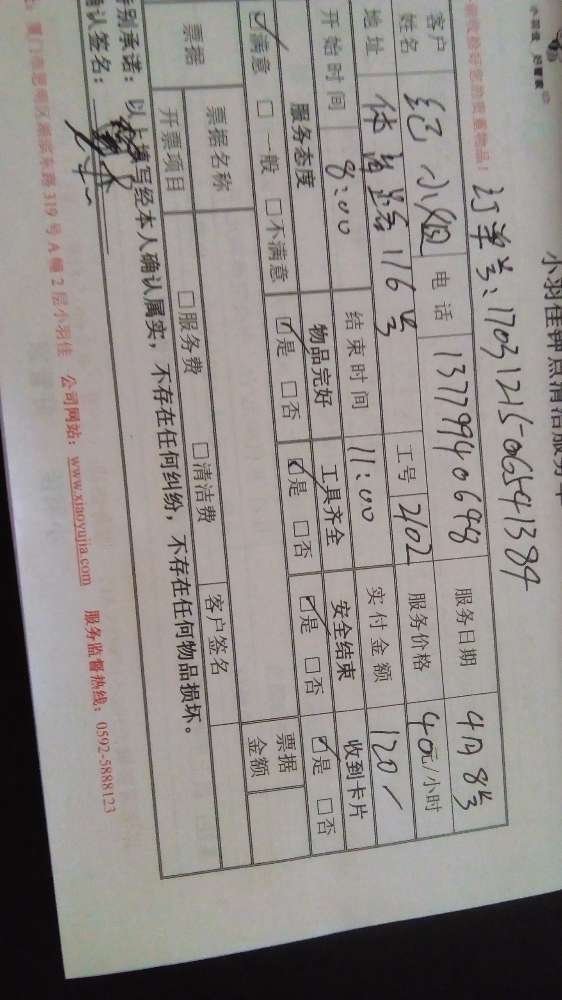 小羽佳 好管家
小羽佳钟点清洁服务单
订单号:1703121506541384
收检好您的贵重物品!
客户姓名 纪小姐 电话 13779940698 服务日期 4月8号
地址 体育路116号 工号 2102 服务价格 40元/小时
开始时间 8:00 结束时间 11:00 实付金额 120
服务态度 物品完好 工具齐全 安全结束 收到卡片
☑满意 □一般 □不满意 ☑是 □否 ☑是 □否 ☑是 □否 ☑是 □否
票据 票据名称 票据金额
开票项目 □服务费 □清洁费 客户签名
特别承诺:以上填写经本人确认属实,不存在任何纠纷,不存在任何物品损坏。
确认签名:
厦门市思明区湖滨东路319号A幢2层小羽佳 公司网站:www.xiaoyujia.com 服务监督热线:0592-5888123